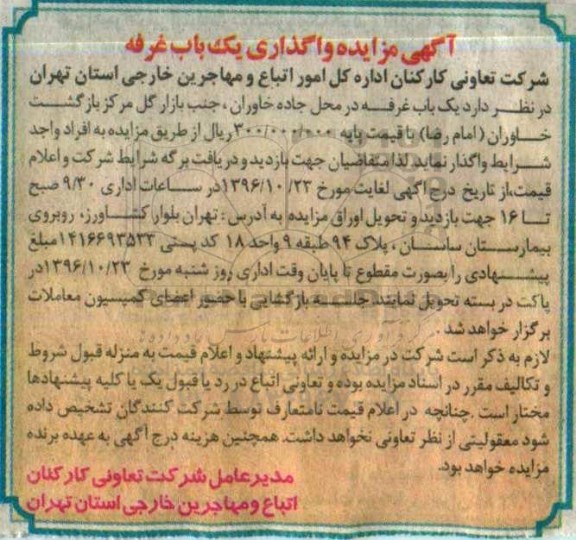 آگهی مزایده واگذاری یک باب غرفه
شرکت تعاونی کارکنان اداره کل امور اتباع و مهاجرین خارجی استان تهران
در نظر دارد یک باب غرفه در محل جاده خاوران ، جنب بازار گل مرکز بازگشت
خاوران ( امام رضا) با قیمت پایه ۳۰۰/۰۰۰/۰۰۰ ریال از طریق مزایده به افراد واجد
شرایط واگذار نماید لذا متقاضیان جهت بازدید و دریافت برگه شرایط شرکت و اعلام
قیمت،از تاریخ درج آگهی لغایت مورخ ۱۳۹۶/۱۰/۲۳در ساعات اداری ۹/۳۰ صبح
تا ۱۶ جهت بازدید و تحویل اوراق مزایده به آدرس : تهران بلوار کشاورز، روبروی
بیمارستان ساسان ، پلاک ۹۴ طبقه ۹ واحد ۱۸ کد پستی ۱۴۱۶۶۹۳۵۳۳مبلغ
پیشنهادی را بصورت مقطوع تا پایان وقت اداری روز شنبه مورخ ۱۳۹۶/۱۰/۲۳در
پاکت در بسته تحویل نمایند. جلسه بازگشایی با حضور اعضای کمیسیون معاملات
برگزار خواهد شد .
لازم به ذکر است شرکت در مزایده و ارائه پیشنهاد و اعلام قیمت به منزله قبول شروط
و تکالیف مقرر در اسناد مزایده بوده و تعاونی اتباع در رد یا قبول یک یا کلیه پیشنهادها
مختار است .چنانچه در اعلام قیمت نامتعارف توسط شرکت کنندگان تشخیص داده
شود معقولیتی از نظر تعاونی نخواهد داشت. همچنین هزینه درج آگهی به عهده برنده
مزایده خواهد بود.
مدیرعامل شرکت تعاونی کارکنان
اتباع و مهاجرین خارجی استان تهران